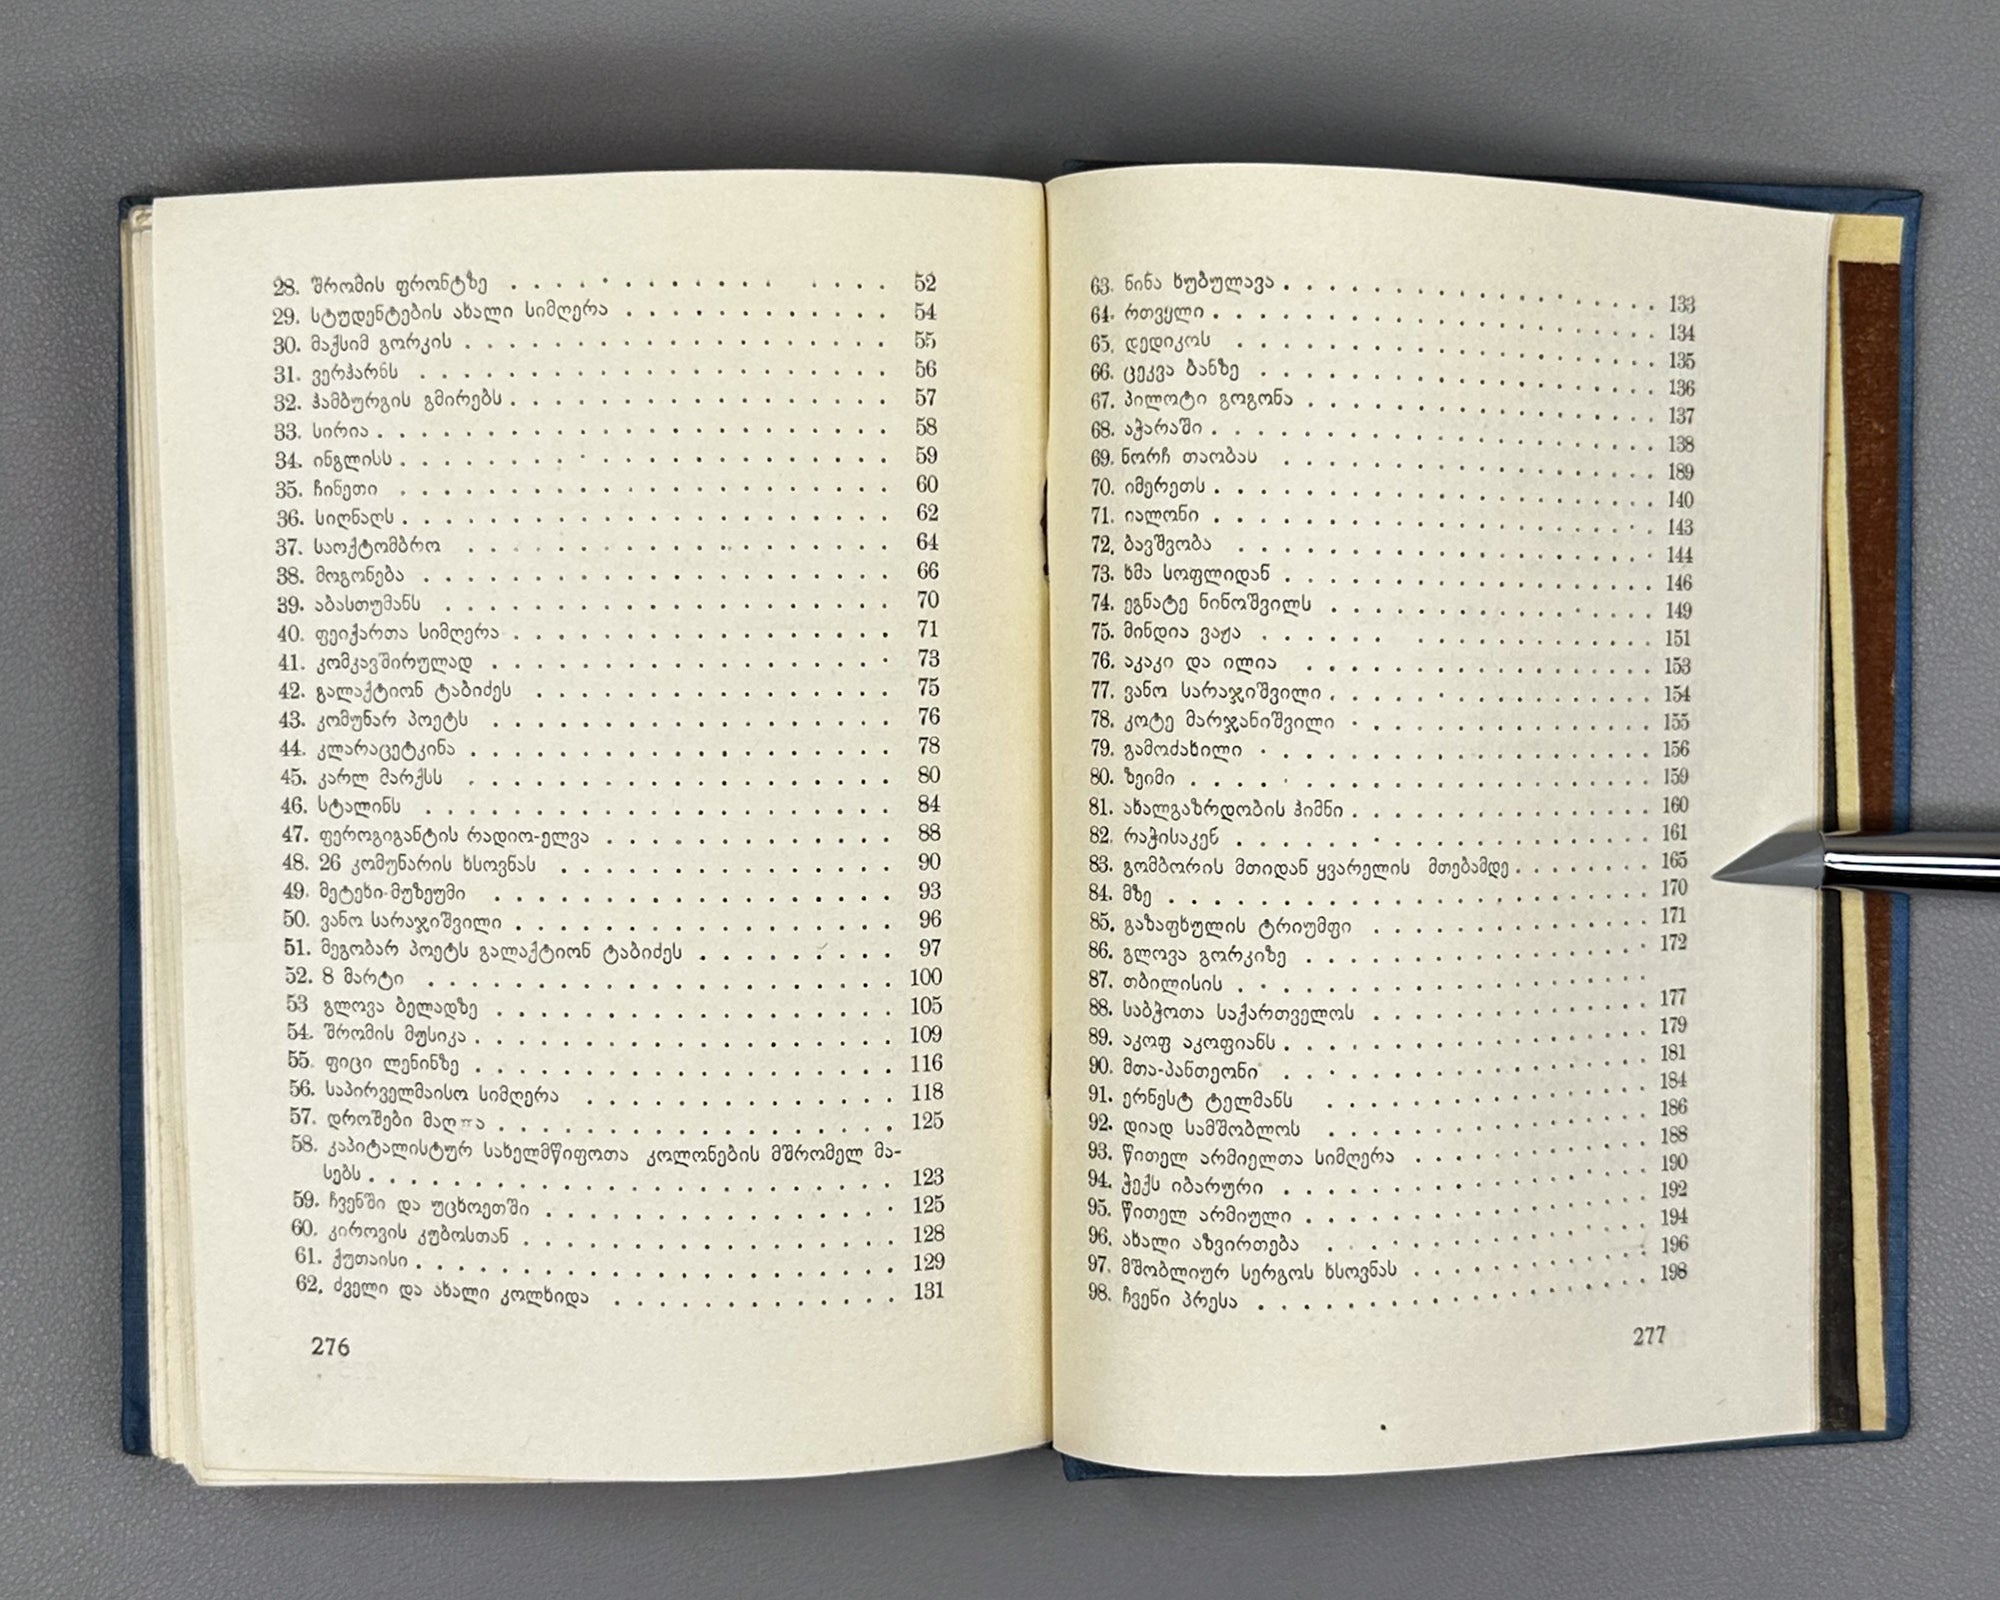 28. შრომის ფრონტზე . . . . . . . . . . . . . . . 52
29. სტუდენტების ახალი სიმღერა . . . . . . . . . . . . 54
30. მაქსიმ გორკის . . . . . . . . . . . . . . . . . . 55
31. ვერჰარნს . . . . . . . . . . . . . . . . . . . . 56
32. ჰამბურგის გმირებს . . . . . . . . . . . . . . . . 57
33. სირია . . . . . . . . . . . . . . . . . . . . . 58
34. ინგლისს . . . . . . . . . . . . . . . . . . . . 59
35. ჩინეთი . . . . . . . . . . . . . . . . . . . . 60
36. სიღნაღს . . . . . . . . . . . . . . . . . . . . 62
37. საოქტომბრო . . . . . . . . . . . . . . . . . . 64
38. მოგონება . . . . . . . . . . . . . . . . . . . 66
39. აბასთუმანს . . . . . . . . . . . . . . . . . . 70
40. ფეიქართა სიმღერა . . . . . . . . . . . . . . . 71
41. კომკავშირულად . . . . . . . . . . . . . . . . 73
42. გალაქტიონ ტაბიძეს . . . . . . . . . . . . . . 75
43. კომუნარ პოეტს . . . . . . . . . . . . . . . . 76
44. კლარაცეტკინა . . . . . . . . . . . . . . . . . 78
45. კარლ მარქსს . . . . . . . . . . . . . . . . . 80
46. სტალინს . . . . . . . . . . . . . . . . . . . 84
47. ფეროგიგანტის რადიო-ელვა . . . . . . . . . . . . 88
48. 26 კომუნარის ხსოვნას . . . . . . . . . . . . . 90
49. მეტეხი-მუზეუმი . . . . . . . . . . . . . . . . 93
50. ვანო სარაჯიშვილი . . . . . . . . . . . . . . . 96
51. მეგობარ პოეტს გალაქტიონ ტაბიძეს . . . . . . . . . 97
52. 8 მარტი . . . . . . . . . . . . . . . . . . . 100
53 გლოვა ბელადზე . . . . . . . . . . . . . . . . 105
54. შრომის მუსიკა . . . . . . . . . . . . . . . . . 109
55. ფიცი ლენინზე . . . . . . . . . . . . . . . . . 116
56. საპირველმაისო სიმღერა . . . . . . . . . . . . . 118
57. დროშები . . . . . . . . . . . . . . . . . 125
58. კაპიტალისტურ სახელმწიფოთა კოლონების მშრომელ მა-
სებს . . . . . . . . . . . . . . . . . . . . . . 123
59. ჩვენში და უცხოეთში . . . . . . . . . . . . . . 125
60. კიროვის კუბოსთან . . . . . . . . . . . . . . . 128
61. ქუთაისი . . . . . . . . . . . . . . . . . . . . 129
62. ძველი და ახალი კოლხიდა . . . . . . . . . . . . 131
276
63. ნინა ხუბულავა . . . . . . . . . . . . . . . . . 133
64. რთველი . . . . . . . . . . . . . . . . . . . . 134
65. დედიკოს . . . . . . . . . . . . . . . . . . . 135
66. ცეკვა ბანზე . . . . . . . . . . . . . . . . . . 136
67. პილოტი გოგონა . . . . . . . . . . . . . . . . 137
68. აჭარაში . . . . . . . . . . . . . . . . . . . . 138
69. ნორჩ თაობას . . . . . . . . . . . . . . . . . 189
70. იმერეთს . . . . . . . . . . . . . . . . . . . . 140
71. იალონი . . . . . . . . . . . . . . . . . . . . 143
72. ბავშვობა . . . . . . . . . . . . . . . . . . . 144
73. ხმა სოფლიდან . . . . . . . . . . . . . . . . . 146
74. ეგნატე ნინოშვილს . . . . . . . . . . . . . . . 149
75. მინდია ვაჟა . . . . . . . . . . . . . . . . . 151
76. აკაკი და ილია . . . . . . . . . . . . . . . . 153
77. ვანო სარაჯიშვილი . . . . . . . . . . . . . . . 154
78. კოტე მარჯანიშვილი . . . . . . . . . . . . . . 155
79. გამოძახილი . . . . . . . . . . . . . . . . . . 156
80. ზეიმი . . . . . . . . . . . . . . . . . . . . 159
81. ახალგაზრდობის ჰიმნი . . . . . . . . . . . . . . 160
82. რაჭისაკენ . . . . . . . . . . . . . . . . . . . 161
83. გომბორის მთიდან ყვარელის მთებამდე . . . . . . . . 165
84. მზე . . . . . . . . . . . . . . . . . . . . . 170
85. გაზაფხულის ტრიუმფი . . . . . . . . . . . . . . 171
86. გლოვა გორკიზე . . . . . . . . . . . . . . . . 172
87. თბილისის . . . . . . . . . . . . . . . . . . .
88. საბჭოთა საქართველოს . . . . . . . . . . . . . . 177
89. აკოფ აკოფიანს . . . . . . . . . . . . . . . . . 179
90. მთა-პანთეონი . . . . . . . . . . . . . . . . . 181
91. ერნესტ ტელმანს . . . . . . . . . . . . . . . . 184
92. დიად სამშობლოს . . . . . . . . . . . . . . . 186
93. წითელ არმიელთა სიმღერა . . . . . . . . . . . . 188
94. ჭექს იბარური . . . . . . . . . . . . . . . . . 190
95. წითელ არმიული . . . . . . . . . . . . . . . . 192
96. ახალი აზვირთება . . . . . . . . . . . . . . . 194
97. მშობლიურ სერგოს ხსოვნას . . . . . . . . . . . . 196
98. ჩვენი პრესა . . . . . . . . . . . . . . . . . . 198
277